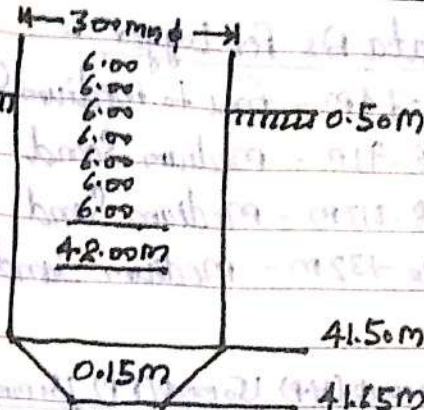 300mm ϕ
6.00
6.00
6.00
6.00
6.00
6.00
6.00
0.50M
48.00M
41.50M
0.15M
41.65M